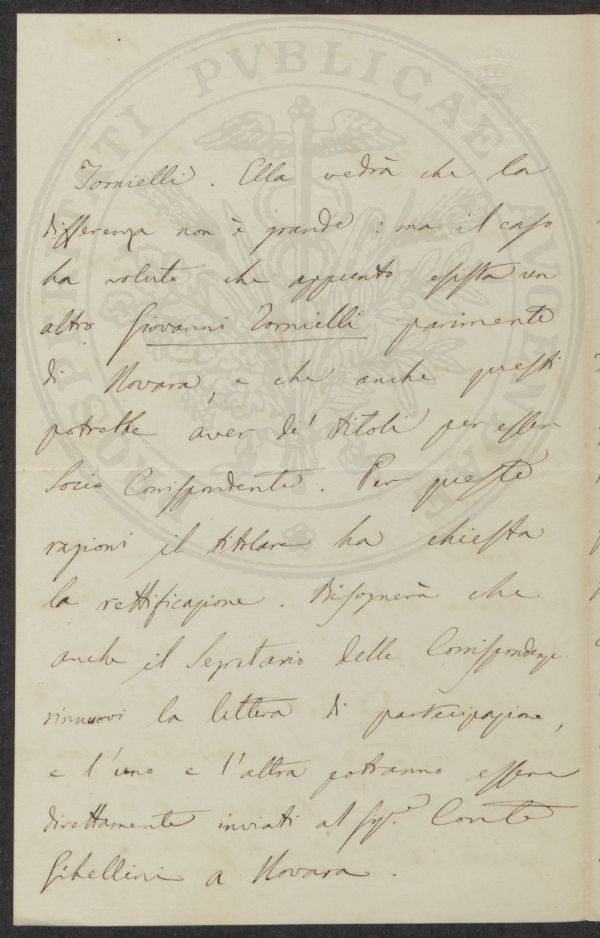 Tornielli. Ella vedrà che la
differenza non è grande: ma il caso
ha voluto che appunto esista un
altro Giovanni Tornielli parimente
di Novara, e che anche questi
potrebbe aver de' titoli per esser
Socio Corrispondente. Per queste
ragioni il titolare ha chiesta
la rettificazione. Bisognerà che
anche il Segretario delle Corrispondenze
rinnuovi la lettera di partecipazione,
e l'uno e l'altra potranno essere
direttamente inviati al Sig.r Conte
Gibellini a Novara.
PROSPERITATI PVBLICAE AVGENDAE